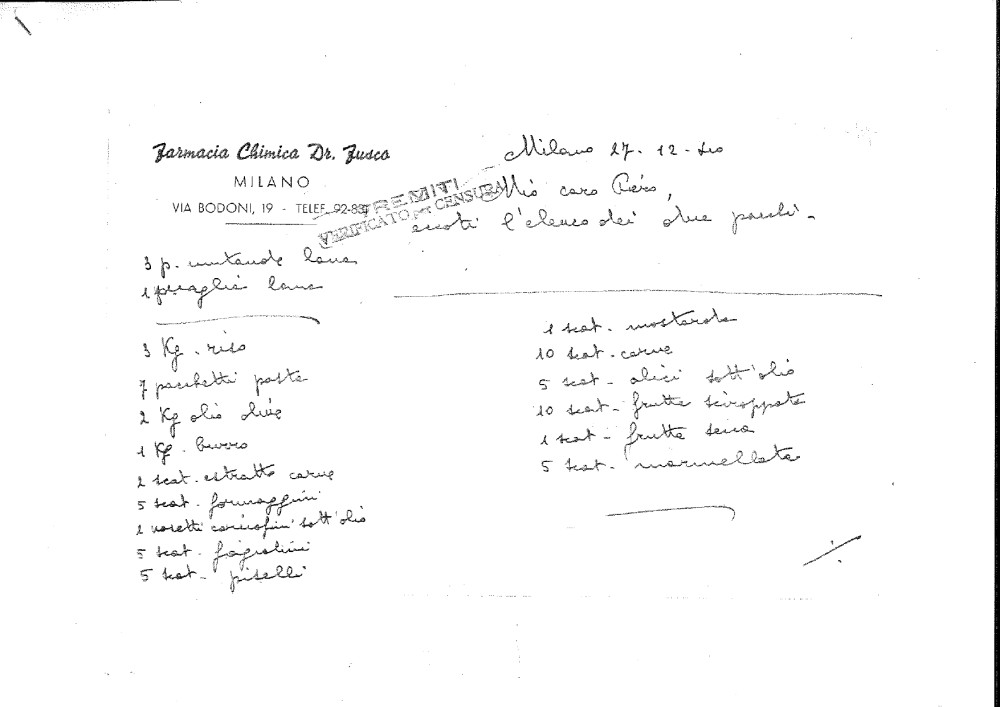 Farmacia Chimica Dr. Fusco
MILANO
VIA BODONI, 19 - TELEF. 92-83
TREMITI
VERIFICATO per CENSURA
Milano 27-12-
Mio caro Piero,
eccoti l'elenco dei due pacchi -
3 p. mutande lana
1 p. maglie lana
3 Kg. riso
7 pacchetti pasta
2 Kg olio olive
1 Kg. burro
2 scat. estratto carne
5 scat. formaggini
2 vasetti carciofini sott'olio
5 scat. fagiolini
5 scat. piselli
1 scat. mostarda
10 scat. carne
5 scat. alici sott'olio
10 scat. frutta sciroppata
1 scat. frutta secca
5 scat. marmellata